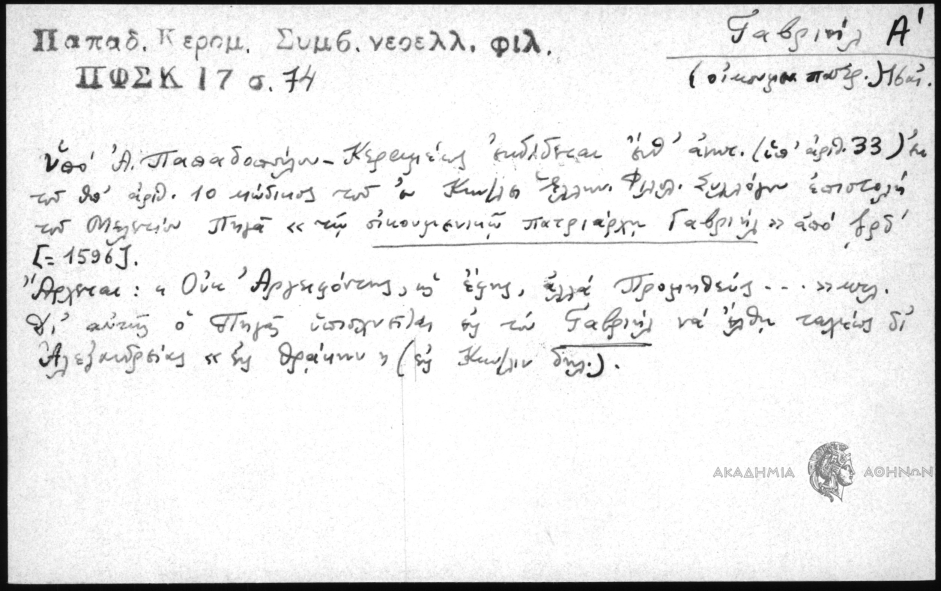 Παπαδ. Κεραμ. Συμβ. νεοελλ. φιλ.
ΠΦΣΚ 17 σ. 74
Γαβριήλ Α΄
(οἰκουμ. πατρ.) 16 αἰ.
Ὑπό Ἀ. Παπαδοπούλου-Κεραμέως ἐκδίδεται ἐνθ' ἀνωτ. (ὑπ' ἀριθ. 33) ἐκ
τοῦ ὑπ' ἀριθ. 10 κώδικος τοῦ ἐν Κων/λει Ἑλλην. Φιλολ. Συλλόγου ἐπιστολή
τοῦ Μελετίου Πηγᾶ « τῷ οἰκουμενικῷ πατριάρχῃ Γαβριήλ » ἀπό
[= 1596].
Ἄρχεται: « Οὐκ Ἀργειφόντης, ὡς ἔφης, ἀλλά Προμηθεύς . . . » κτλ.
Δι' αὐτῆς ὁ Πηγᾶς ὑπισχνεῖται εἰς τόν Γαβριήλ νά ἔλθῃ ταχέως δι'
Ἀλεξανδρείας « εἰς Θρᾴκην » (εἰς Κων/λιν δηλ.).
ΑΚΑΔΗΜΙΑ ΑΘΗΝΩΝ